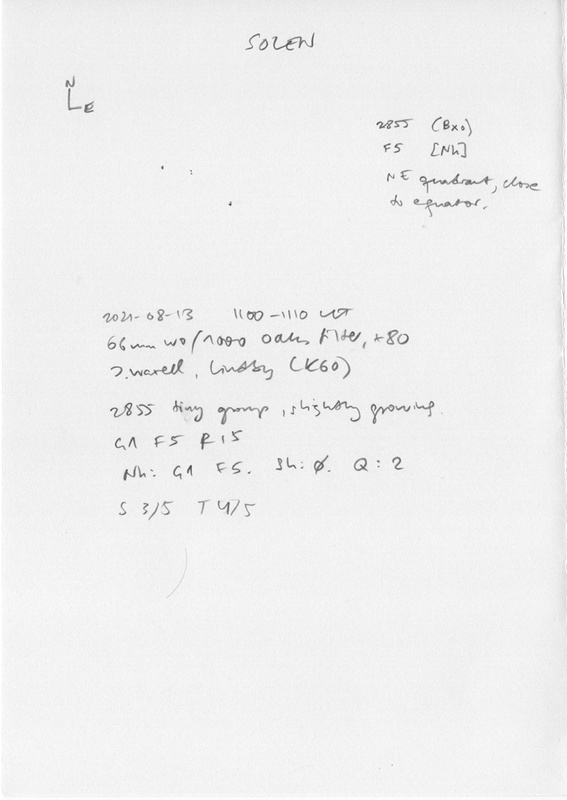 SOLEN
N
E
2855 (Bxo)
F5 [Nh]
NE quadrant, close
to equator.
2021-08-13 1100-1110 UT
66mm WO/1000 Oaks filter, ×80
J. Warell, Lindby (K60)
2855 tiny group, slightly growing.
G1 F5 R15
Nh: G1 F5. Sh: ø. Q: 2
S 3/5 T 4/5